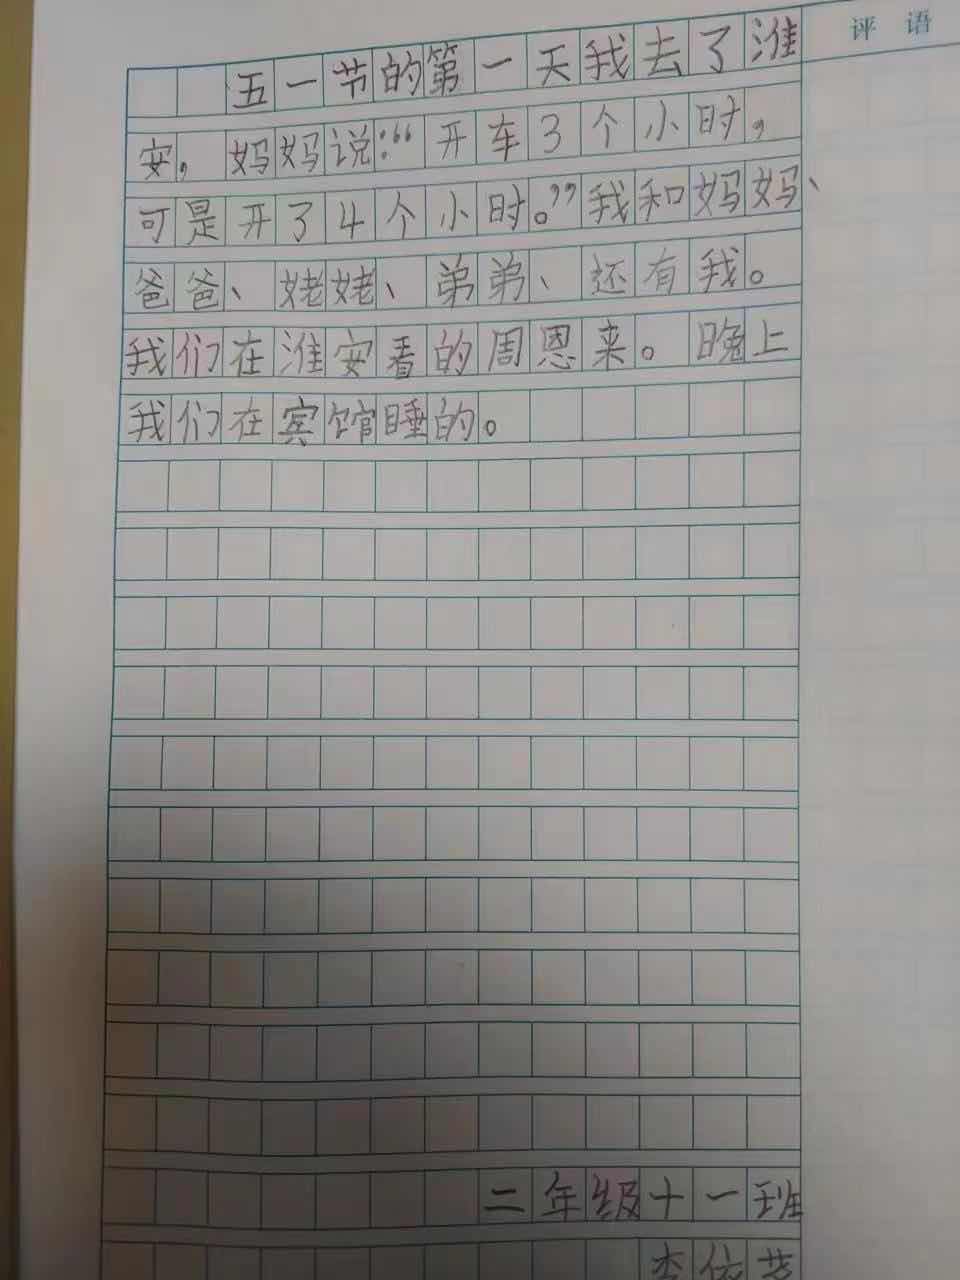 评 语
五一节的第一天我去了淮
安，妈妈说：“开车3个小时，
可是开了4个小时。”我和妈妈、
爸爸、姥姥、弟弟、还有我。
我们在淮安看的周恩来。晚上
我们在宾馆睡的。
二年级十一班
李依